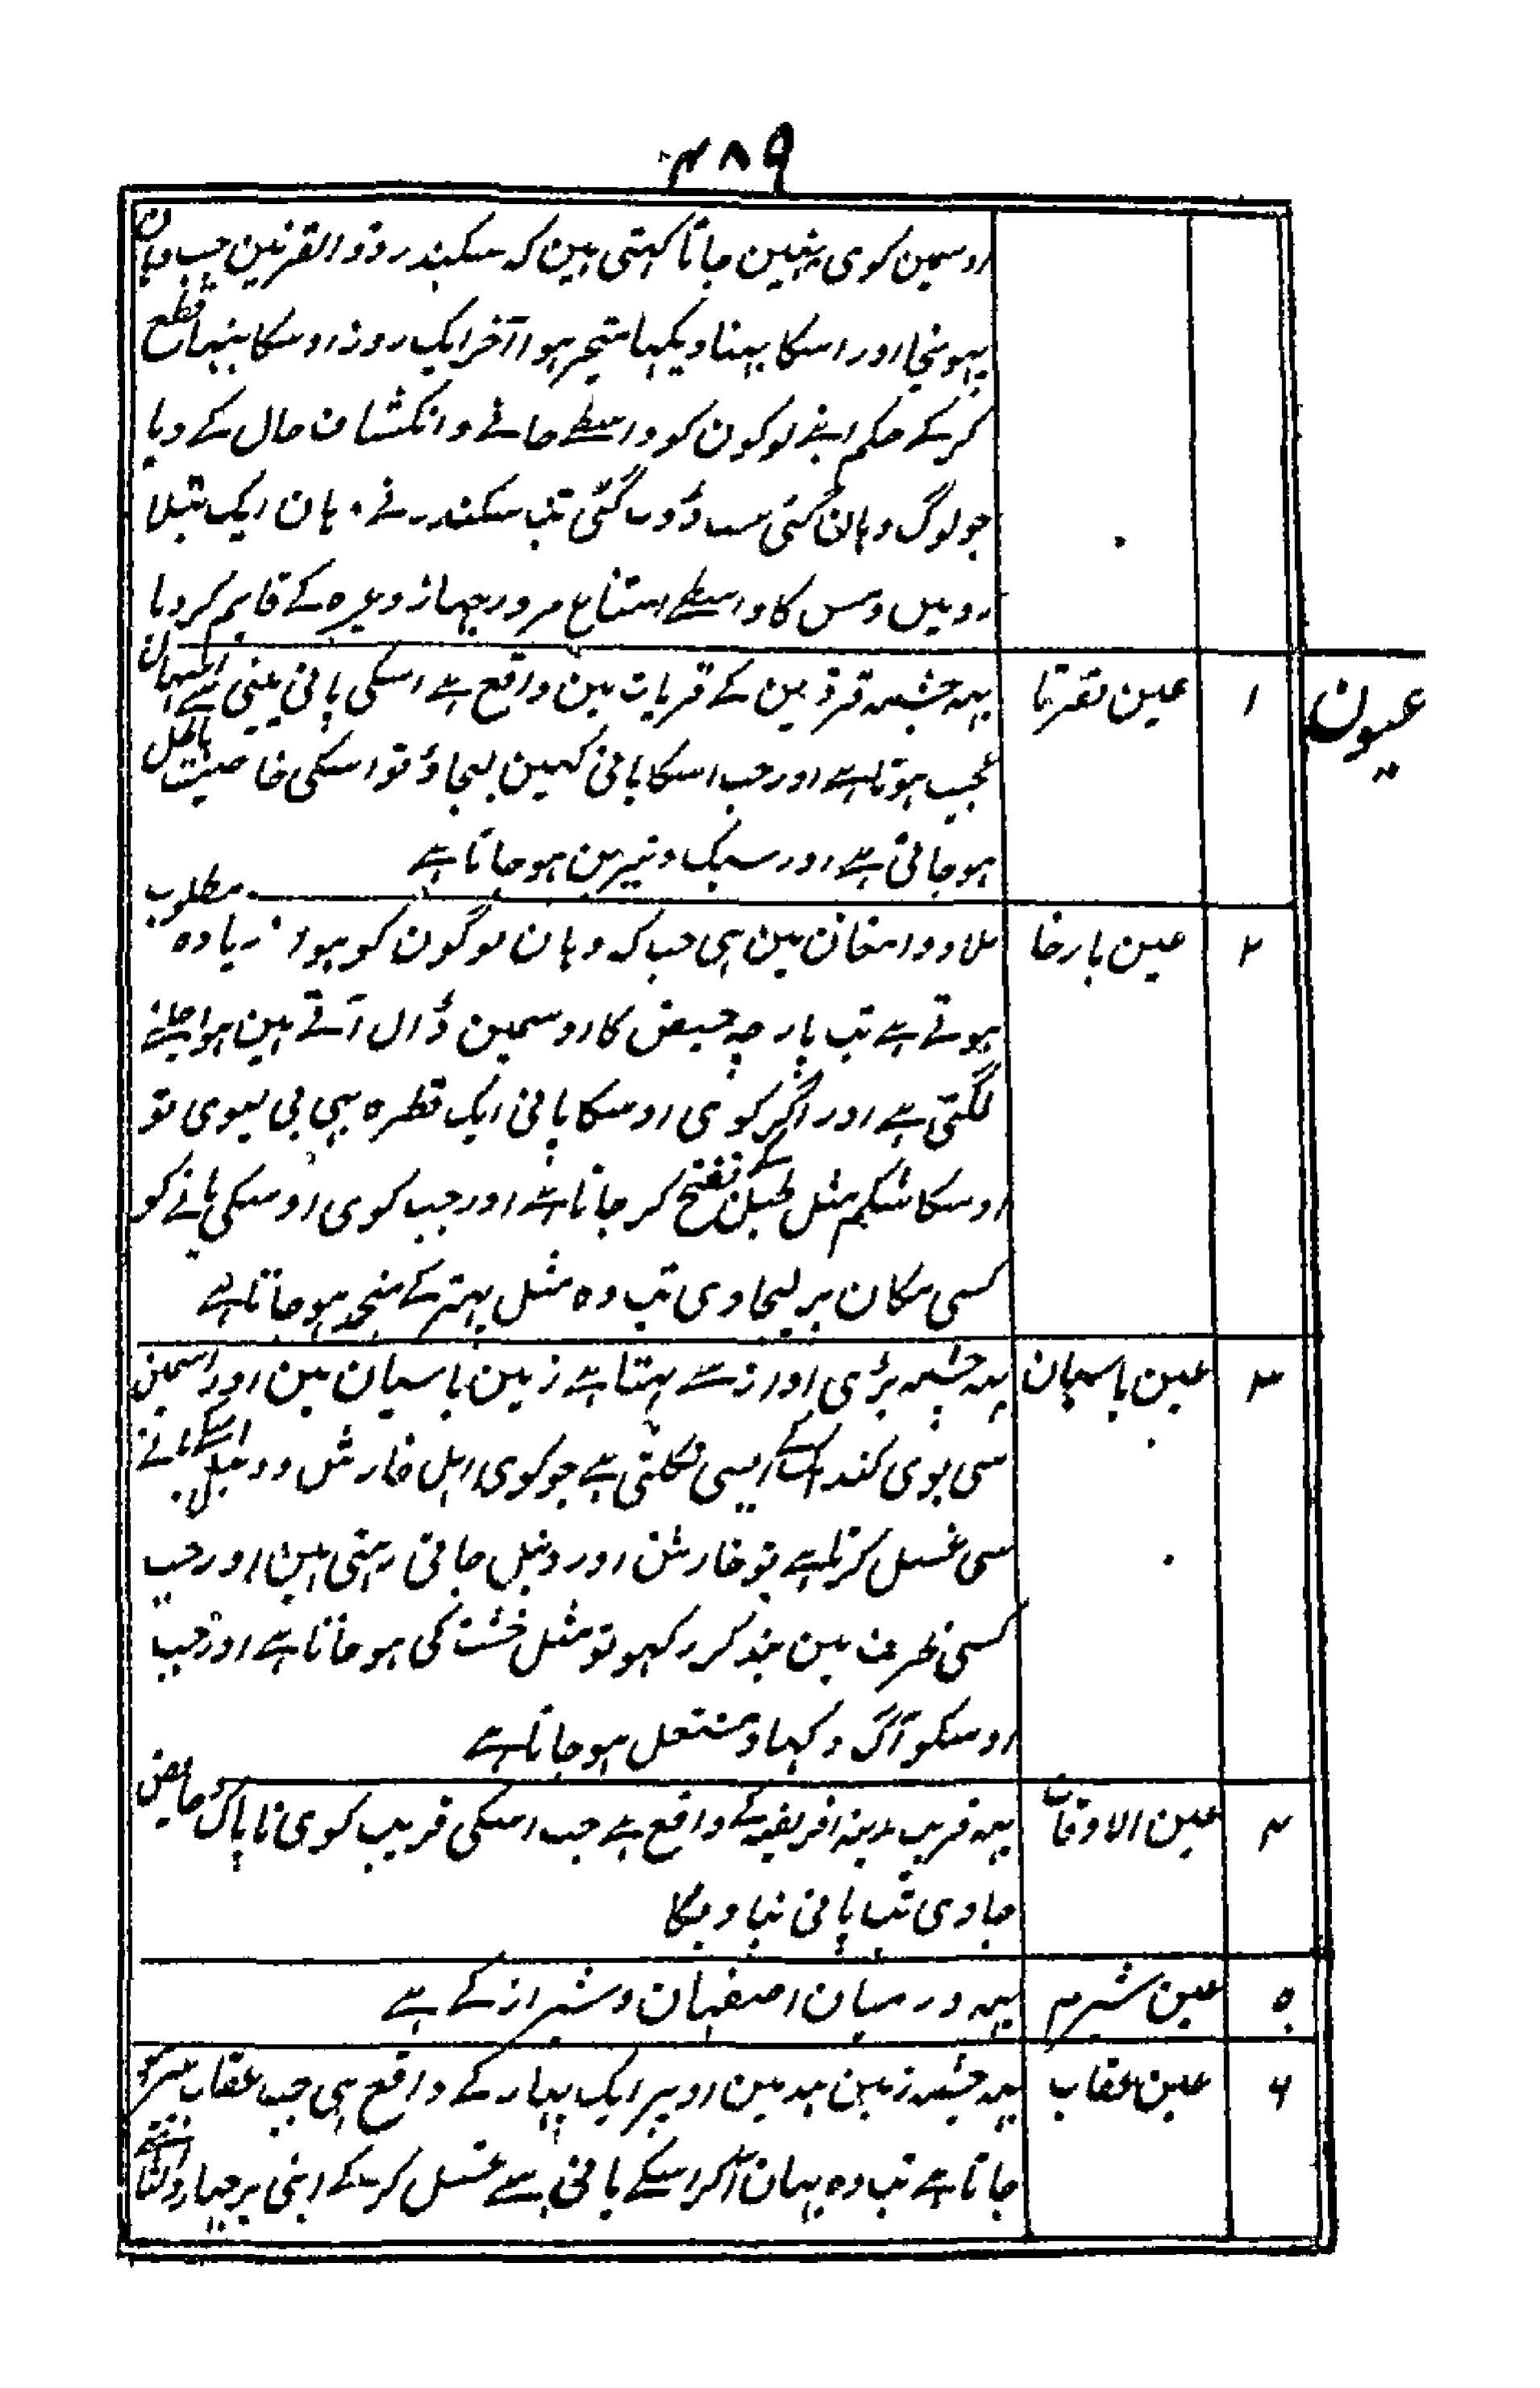 ۴۸۹
اوسمین کوی نہین جاتا کہتی ہین کہ سکندر ذو القرنین جب وہان
پہونچا اور اسکا بہنا دیکہا متحیر ہوا آخر ایک روز اوسکا بہنا قطع
کرکے حکم اپنے لوکون کو واسطے جانے و انکشاف حال کے دیا
جو لوگ وہان گئی سب ڈوب گئی تب سکندر نے وہان ایک پتلا
روئین ومس کا واسطے امتناع مرور جہاز وغیرہ کے قایم کر دیا
عیون
۱ عین نقرتا یہہ چشمہ قزوین کے قریات مین واقع ہے اسکی پانی پینی سے اسہال
عجیب ہوتا ہے اور جب اسکا پانی کہین لیجاؤ تو اسکی خاصیت باطل
ہو جاتی ہے اور سبک و شیرین ہو جاتا ہے
۲ عین بارخا بلاد دامغان مین ہی جب کہ وہان لوگون کو ہوا زیادہ مطلوب
ہوتے ہے تب پارچہ حیض کا اوسمین ڈال آتے ہین ہوا چلنے
لگتی ہے اور اگر کوی اوسکا پانی ایک قطرہ بہی پی لیوی تو
اوسکا شکم مثل طبل کے نفخ کر جاتا ہے اور جب کوی اوسکی پانے کو
کسی مکان پر لیجاوی تب وہ مثل پہتر کے منجمد ہو جاتا ہے
۳ عین بامیان یہہ چشمہ بڑی اواز سے بہتا ہے زمین بامیان مین اور اسمین
سی بوی کندک کے ایسی نکلتی ہے جو کوی اہل خارش و دنبل اسکے پانے
سی غسل کرتا ہے تو خارش اور دنبل جاتی رہتی ہین اور جب
کسی ظرف مین بند کر رکہو تو مثل خشت کی ہو جاتا ہے اور جب
اوسکو آگ دکہاؤ مشتعل ہو جاتا ہے
۴ عین الاوقات یہہ قریب مدینہ افریقیہ کے واقع ہے جب اسکی قریب کوی ناپاک و حایض
جاوی تب پانی نپاویگا
۵ عین شرم یہہ درمیان اصفہان و شیراز کے ہے
۶ عین عقاب یہہ چشمہ زمین ہند مین اوپر ایک پہاڑ کے واقع ہی جب عقاب پیر ہو
جاتا ہے تب وہ یہان آکر اسکے پانی سے غسل کرکے اپنی پر جہاڑ ڈالتا